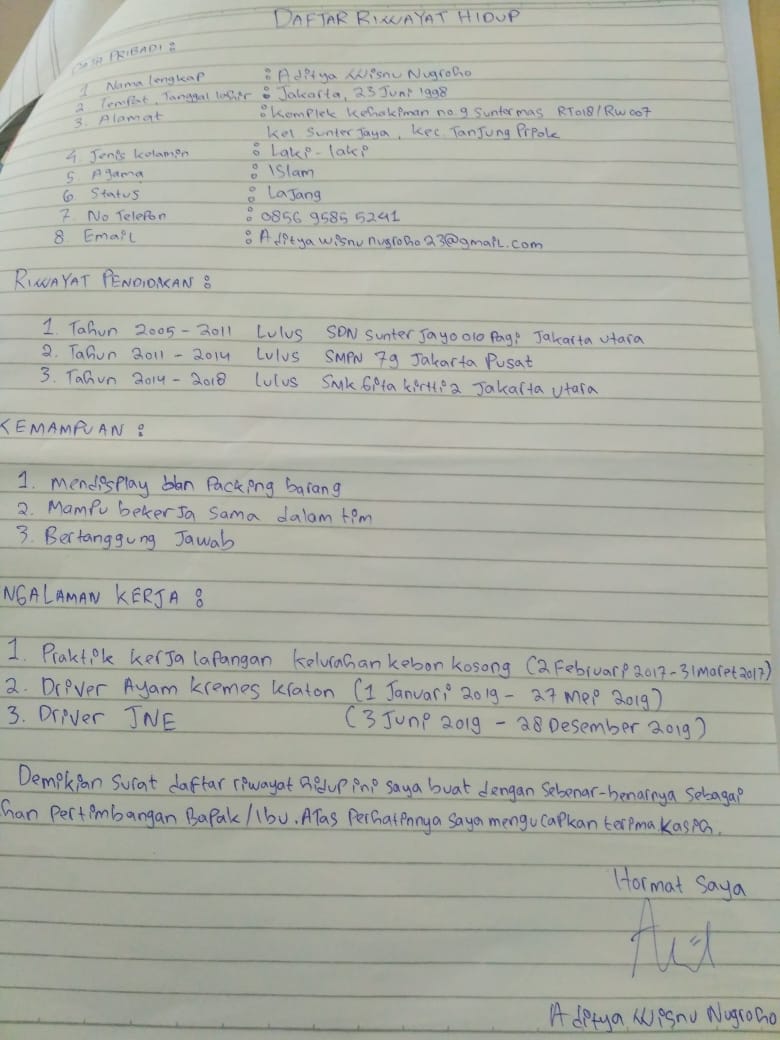 DAFTAR RIWAYAT HIDUP
DATA PRIBADI :
1 Nama lengkap : Aditya Wisnu Nugroho
2 Tempat, Tanggal lahir : Jakarta, 23 Juni 1998
3. Alamat : Komplek Kehakiman no.9 Sunter mas RT018/RW007
Kel Sunter Jaya, Kec Tanjung Priok
4. Jenis kelamin : Laki-laki
5 Agama : Islam
6. Status : Lajang
7. No Telefon : 0856 9585 5241
8 Email : Adityawisnunugroho23@gmail.com
RIWAYAT PENDIDIKAN :
1. Tahun 2005 - 2011 Lulus SDN Sunter Jaya 010 Pagi Jakarta Utara
2. Tahun 2011 - 2014 Lulus SMPN 79 Jakarta Pusat
3. Tahun 2014 - 2018 Lulus SMK Gita kirtti 2 Jakarta Utara
KEMAMPUAN :
1. Mendisplay dan Packing barang
2. Mampu bekerja sama dalam tim
3. Bertanggung Jawab
NGALAMAN KERJA :
1. Praktik kerja lapangan kelurahan kebon kosong (2 Februari 2017 - 31 Maret 2017)
2. Driver Ayam kremes kraton (1 Januari 2019 - 27 Mei 2019)
3. Driver JNE (3 Juni 2019 - 28 Desember 2019)
Demikian surat daftar riwayat hidup ini saya buat dengan sebenar-benarnya sebagai
han pertimbangan Bapak/Ibu. Atas perhatinnya saya mengucapkan terima kasih.
Hormat Saya
Aditya Wisnu Nugroho